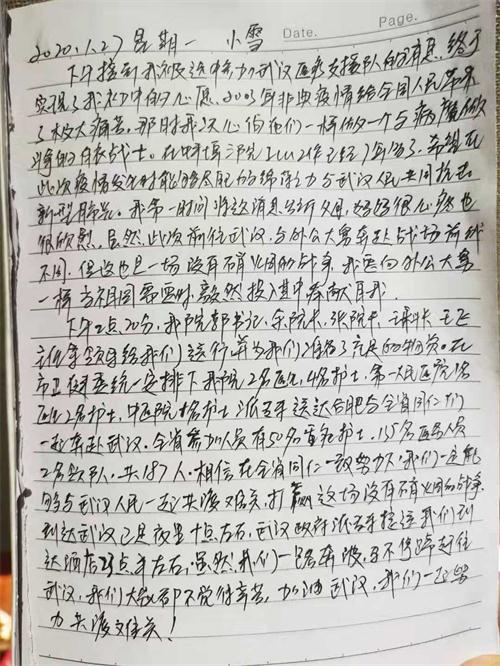 Date.
Page.
2020.1.27 星期一 小雪
下午接到我被选中参加武汉医疗支援队的消息,终于
实现了我初中的心愿,2003年非典疫情给全国人民带来
了极大痛苦,那时我决心向他们一样做一个与病魔做
斗争的白衣战士。在蚌埠三院ICU工作已经1年多了。希望在
此次疫情发生时能够尽自己的绵薄之力与武汉人民共同抗击
新型肺炎。我第一时间将这消息告诉父母,妈妈很心疼也
很欣慰,虽然此次前往武汉,与外公大舅奔赴战场前线
不同,但这也是一场没有硝烟的战争,我要向外公大舅
一样当祖国需要时,毅然投入其中奉献自我。
下午2点20分,我院郭书记,余院长,张院长,
主任等领导给我们送行,并为我们准备了充足的物资。在
市卫健委统一安排下我院2名医生,4名护士,第一人民医院1名
医生2名护士,中医院1名护士 派专车送达合肥与全省同仁们
一起奔赴武汉。全省参加人员有50名重症护士,135名医务人员
2名领队,共187人。相信在全省同仁一致努力下,我们一定能
够与武汉人民一起共渡难关,打赢这场没有硝烟的战争。
到达武汉已是夜里十点左右,武汉政府派专车接送我们到
达酒店23点半左右,虽然我们一路奔波,马不停蹄赶往
武汉,我们大家都不觉得辛苦,加油武汉,我们一起努
力共渡难关!